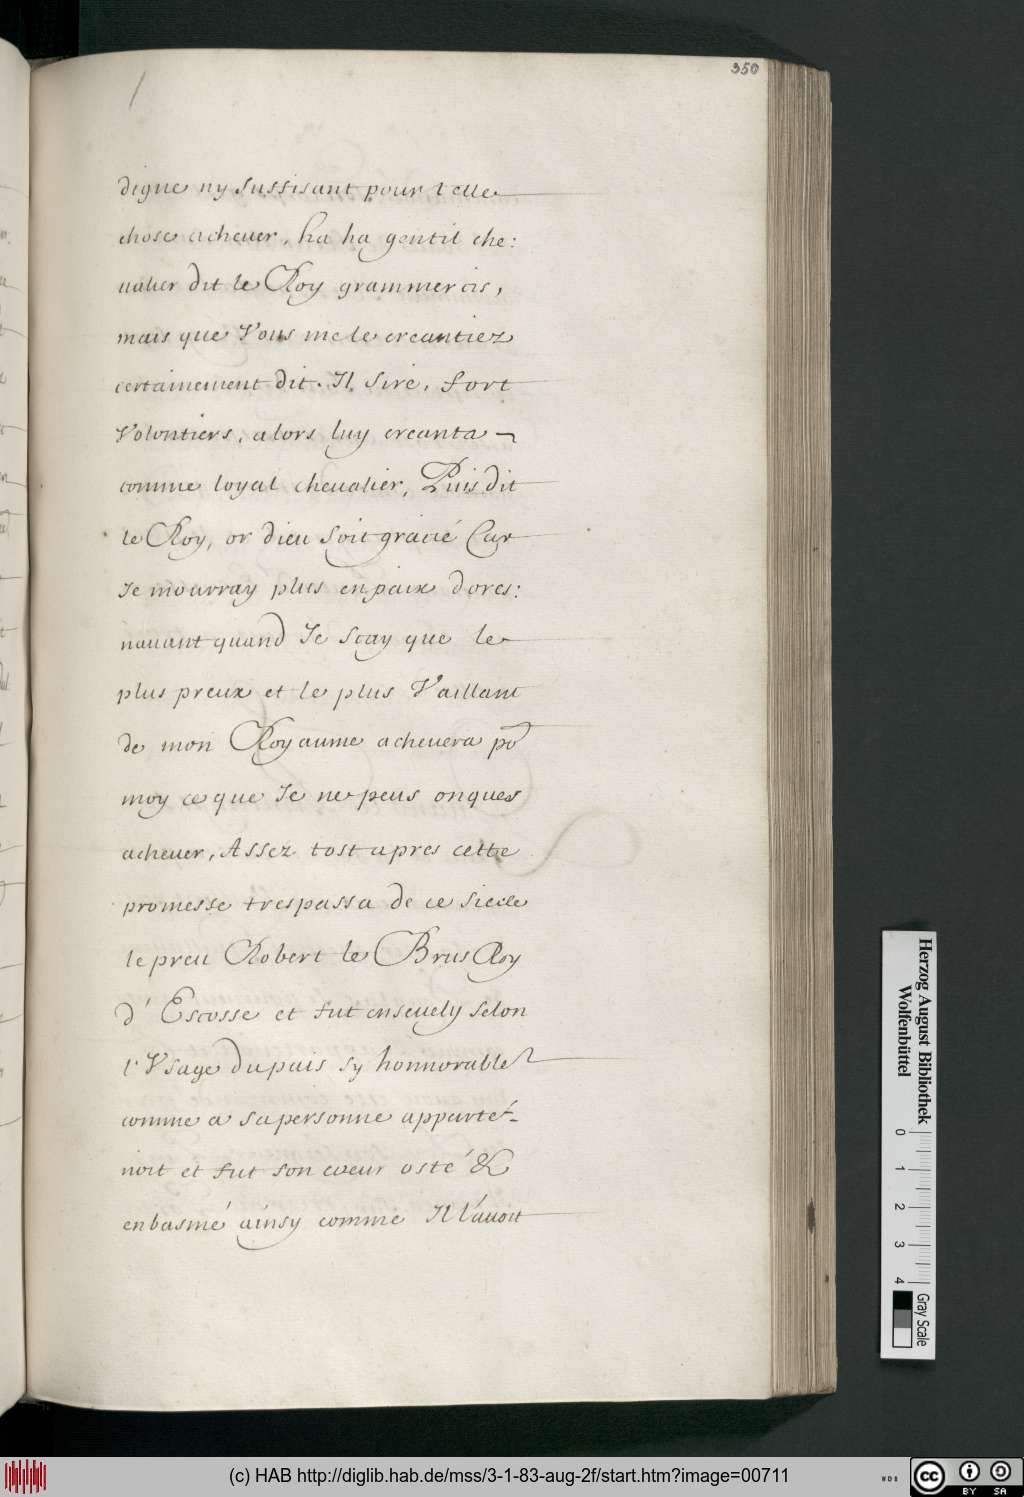 350
digne ny suffisant pour telle
chose acheuer, ha ha gentil che:
ualier dit le Roy grammercis,
mais que Vous me le creantiez
certainement dit. Il Sire, fort
Volontiers, alors luy creanta
comme loyal cheualier, Puis dit
le Roy, or dieu soit gracié Car
Je mourray plus en paix dores:
nauant quand Je scay que le
plus preux et le plus Vaillant
de mon Royaume acheuera po
moy ce que Je ne peus onques
acheuer, Assez tost apres cette
promesse trespassa de ce siecle
le preu Robert le Brus Roy
d'Escosse et fut enseuely selon
l'Vsage du pais sy honnorable
comme a sa personne apparte-
noit et fut son coeur osté &
enbasmé ainsy comme Il l'auoit
Herzog August Bibliothek
Wolfenbüttel
0 1 2 3 4
Gray Scale
(c) HAB http://diglib.hab.de/mss/3-1-83-aug-2f/start.htm?image=00711
cc BY SA